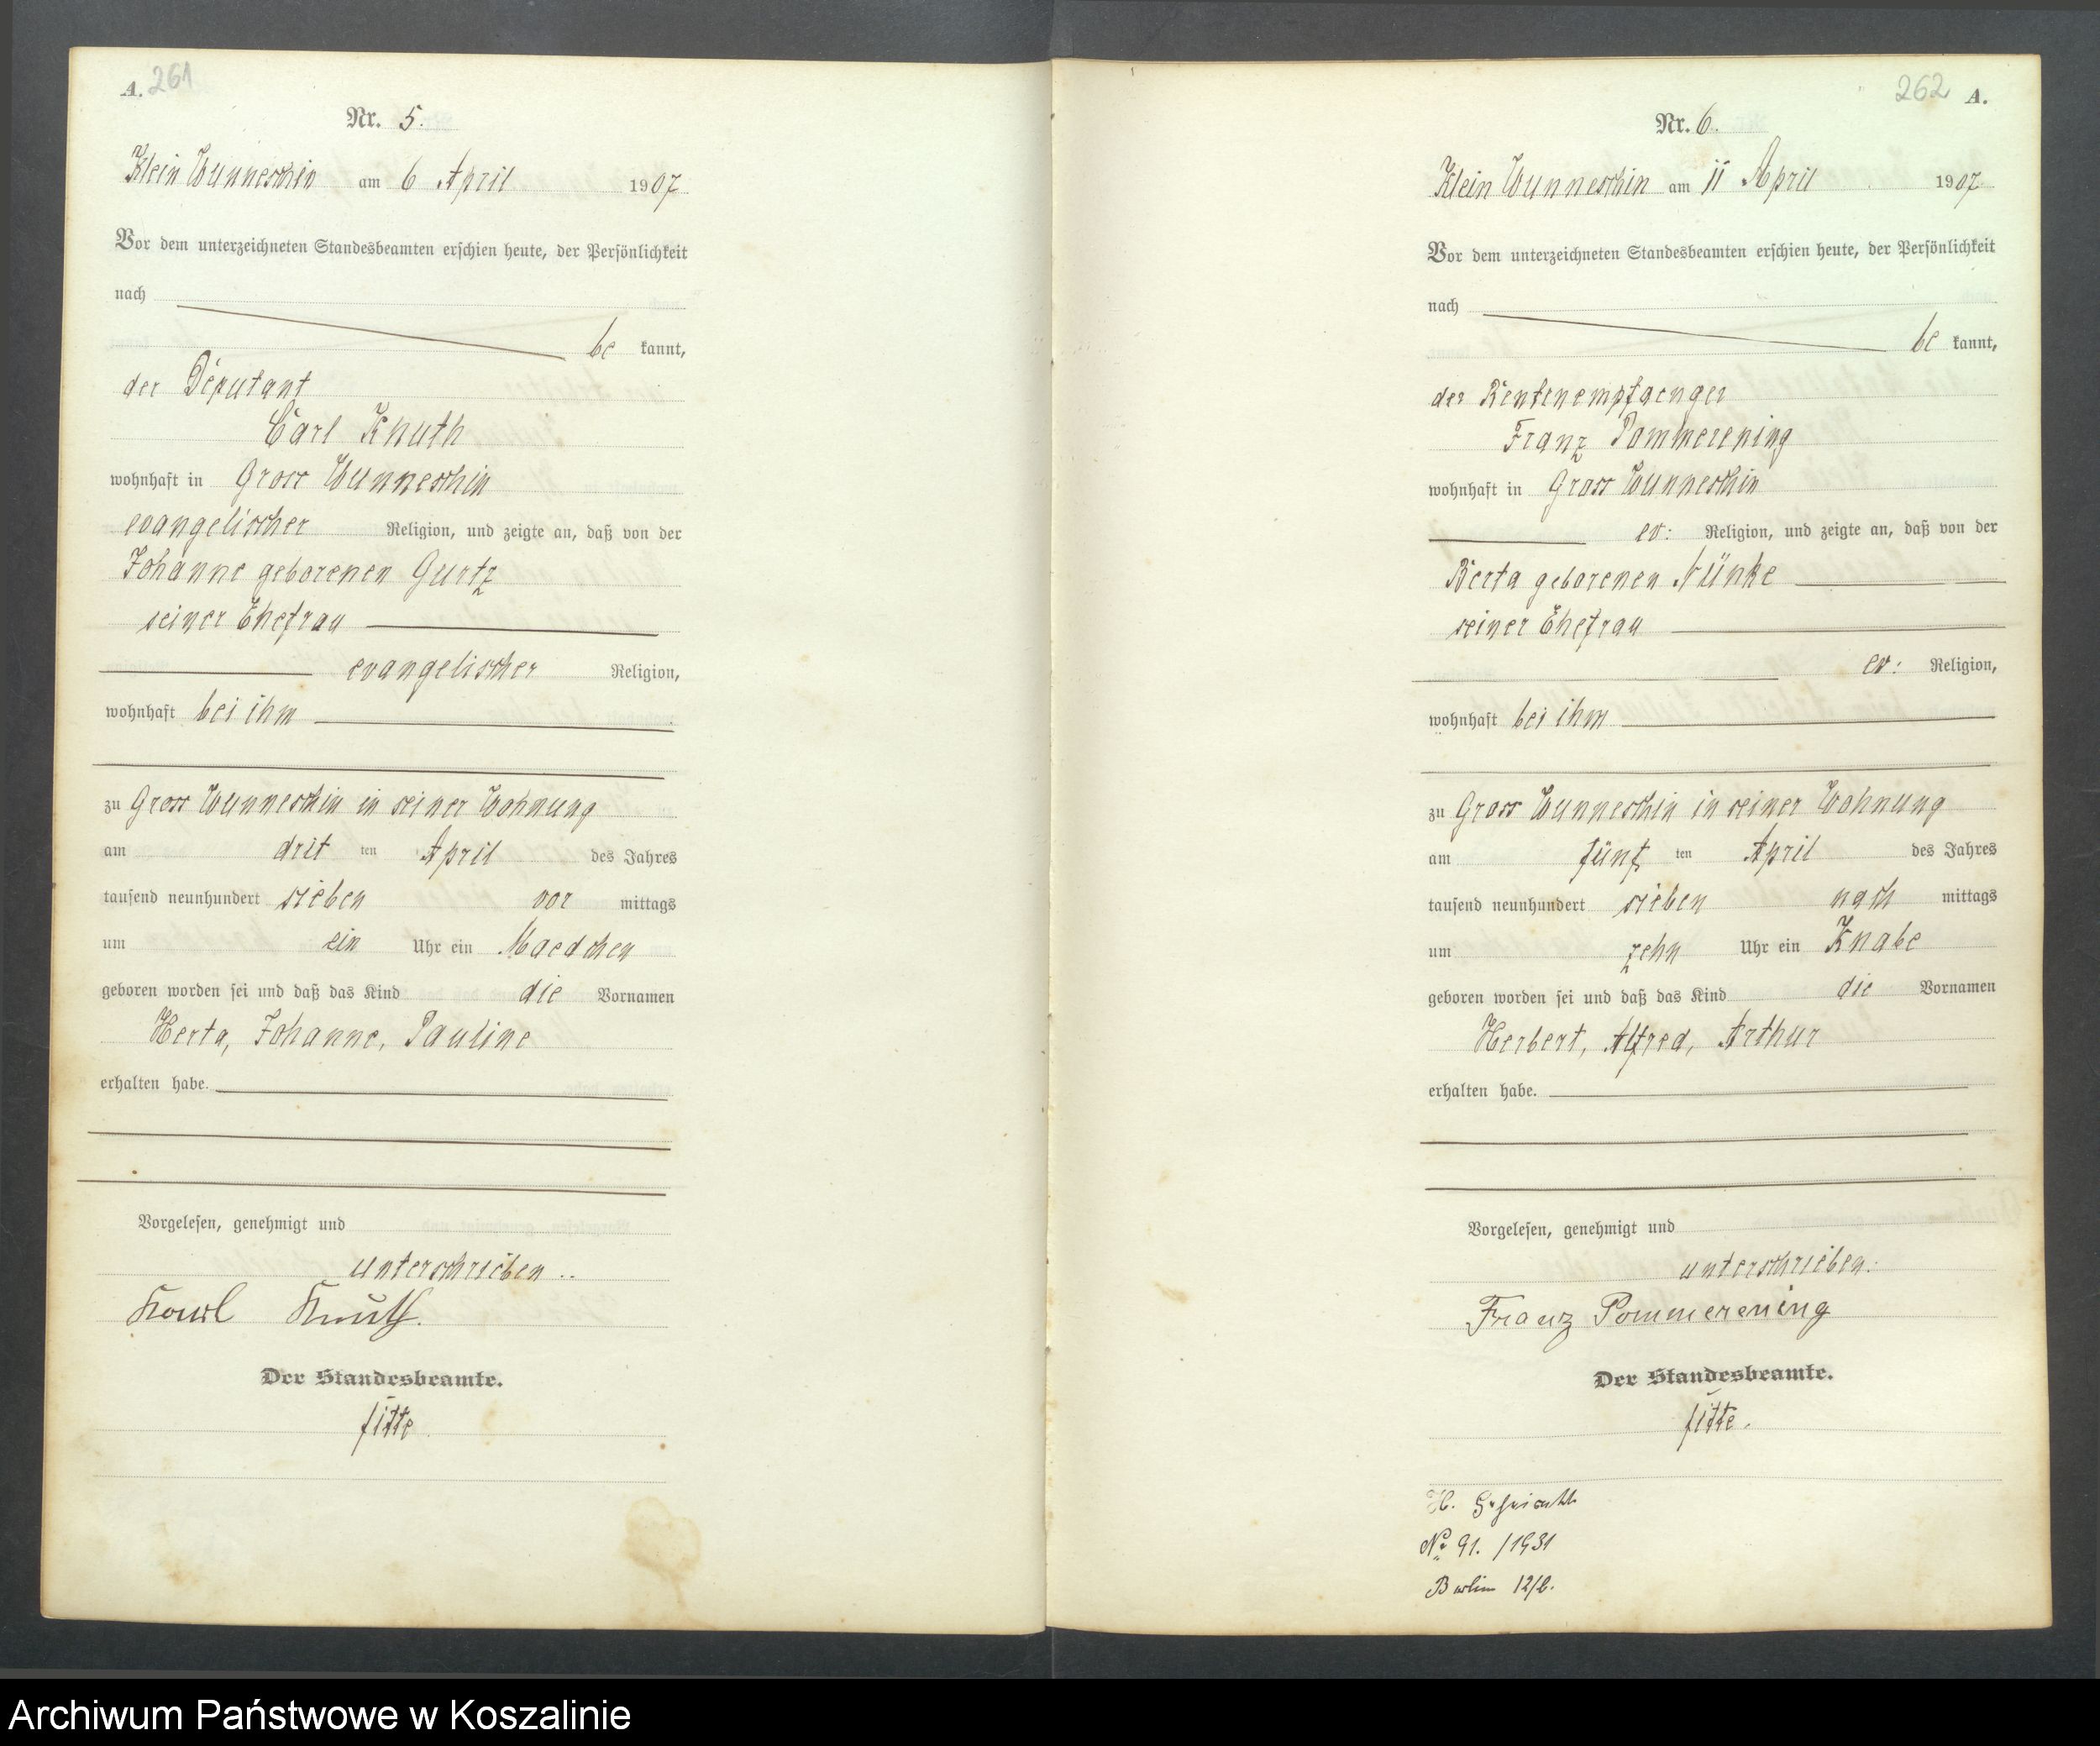 A. 261
Nr. 5.
Klein Wunneschin am 6 April 1907
Vor dem unterzeichneten Standesbeamten erschien heute, der Persönlichkeit
nach
be kannt,
der Deputant
Carl Knuth
wohnhaft in Gross Wunneschin
evangelischer Religion, und zeigte an, daß von der
Johanne geborenen Gurtz
seiner Ehefrau
evangelischer Religion,
wohnhaft bei ihm
zu Gross Wunneschin in seiner Wohnung
am drit ten April des Jahres
tausend neunhundert sieben vor mittags
um ein Uhr ein Maedchen
geboren worden sei und daß das Kind die Vornamen
Herta, Johanne, Pauline
erhalten habe.
Vorgelesen, genehmigt und
unterschrieben..
Karl Knuth.
Der Standesbeamte.
fitte
262 A.
Nr. 6.
Klein Wunneschin am 11 April 1907
Vor dem unterzeichneten Standesbeamten erschien heute, der Persönlichkeit
nach
be kannt,
der Rentenempfaenger
Franz Pommerening
wohnhaft in Gross Wunneschin
ev: Religion, und zeigte an, daß von der
Berta geborenen Nünke
seiner Ehefrau
ev: Religion,
wohnhaft bei ihm
zu Gross Wunneschin in seiner Wohnung
am fünf ten April des Jahres
tausend neunhundert sieben nach mittags
um zehn Uhr ein Knabe
geboren worden sei und daß das Kind die Vornamen
Herbert, Alfred, Arthur
erhalten habe.
Vorgelesen, genehmigt und
unterschrieben.
Franz Pommerening
Der Standesbeamte.
fitte.
No 91. /1931
Berlin 12/2.
Archiwum Państwowe w Koszalinie